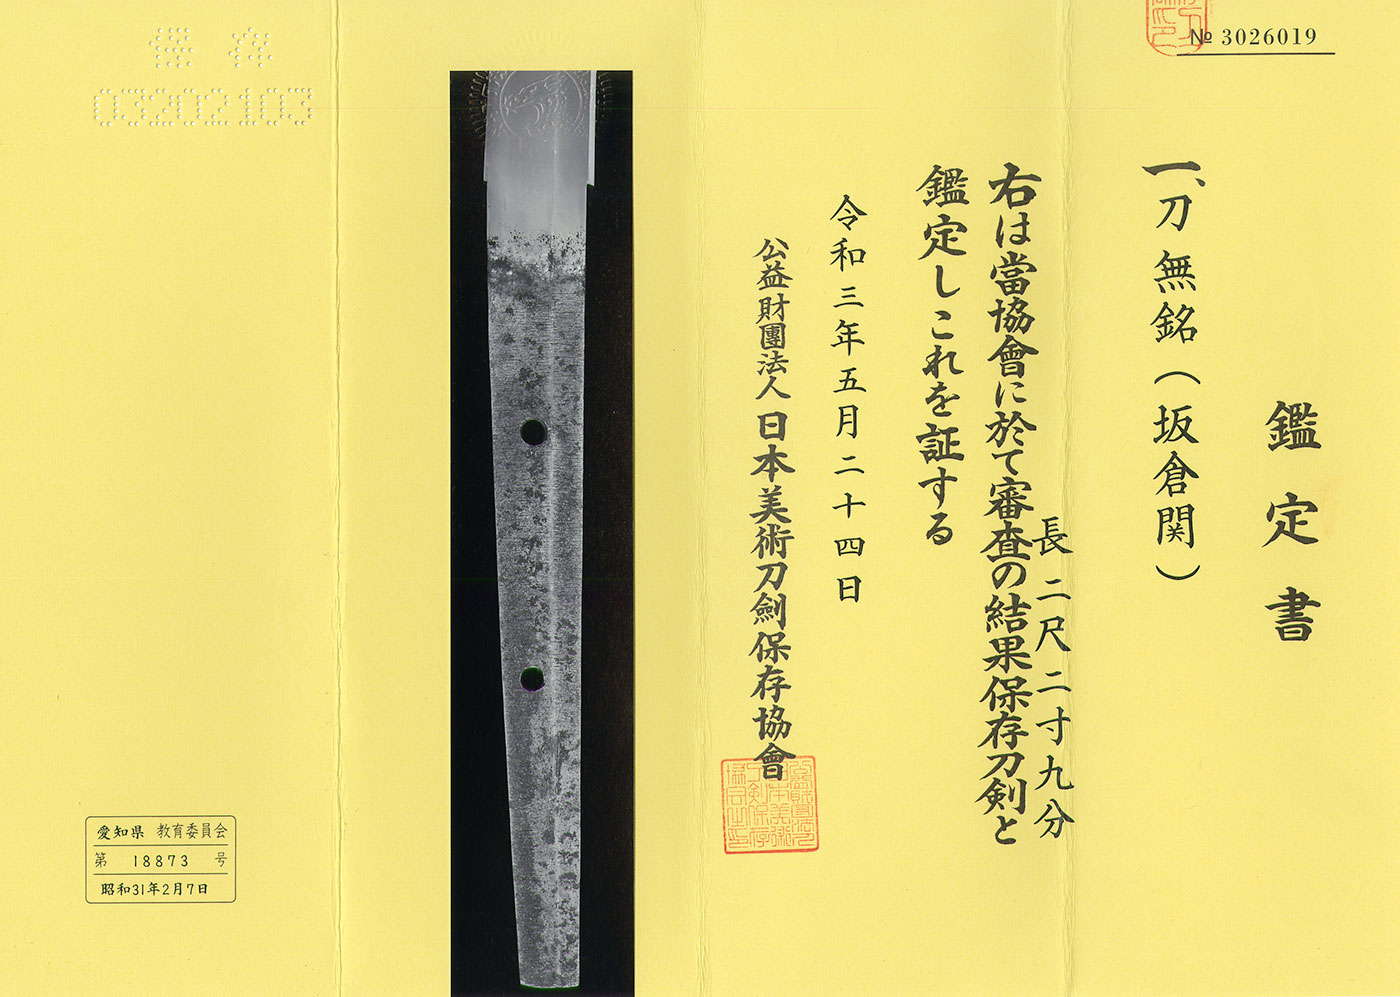 № 3026019
鑑定書
一、刀 無銘（坂倉関）
長 二尺二寸九分
右は當協會に於て審査の結果保存刀剣と
鑑定しこれを証する
令和三年五月二十四日
公益財團法人 日本美術刀劍保存協會
保存
03202103
愛知県 教育委員会
第 18873 号
昭和31年2月7日